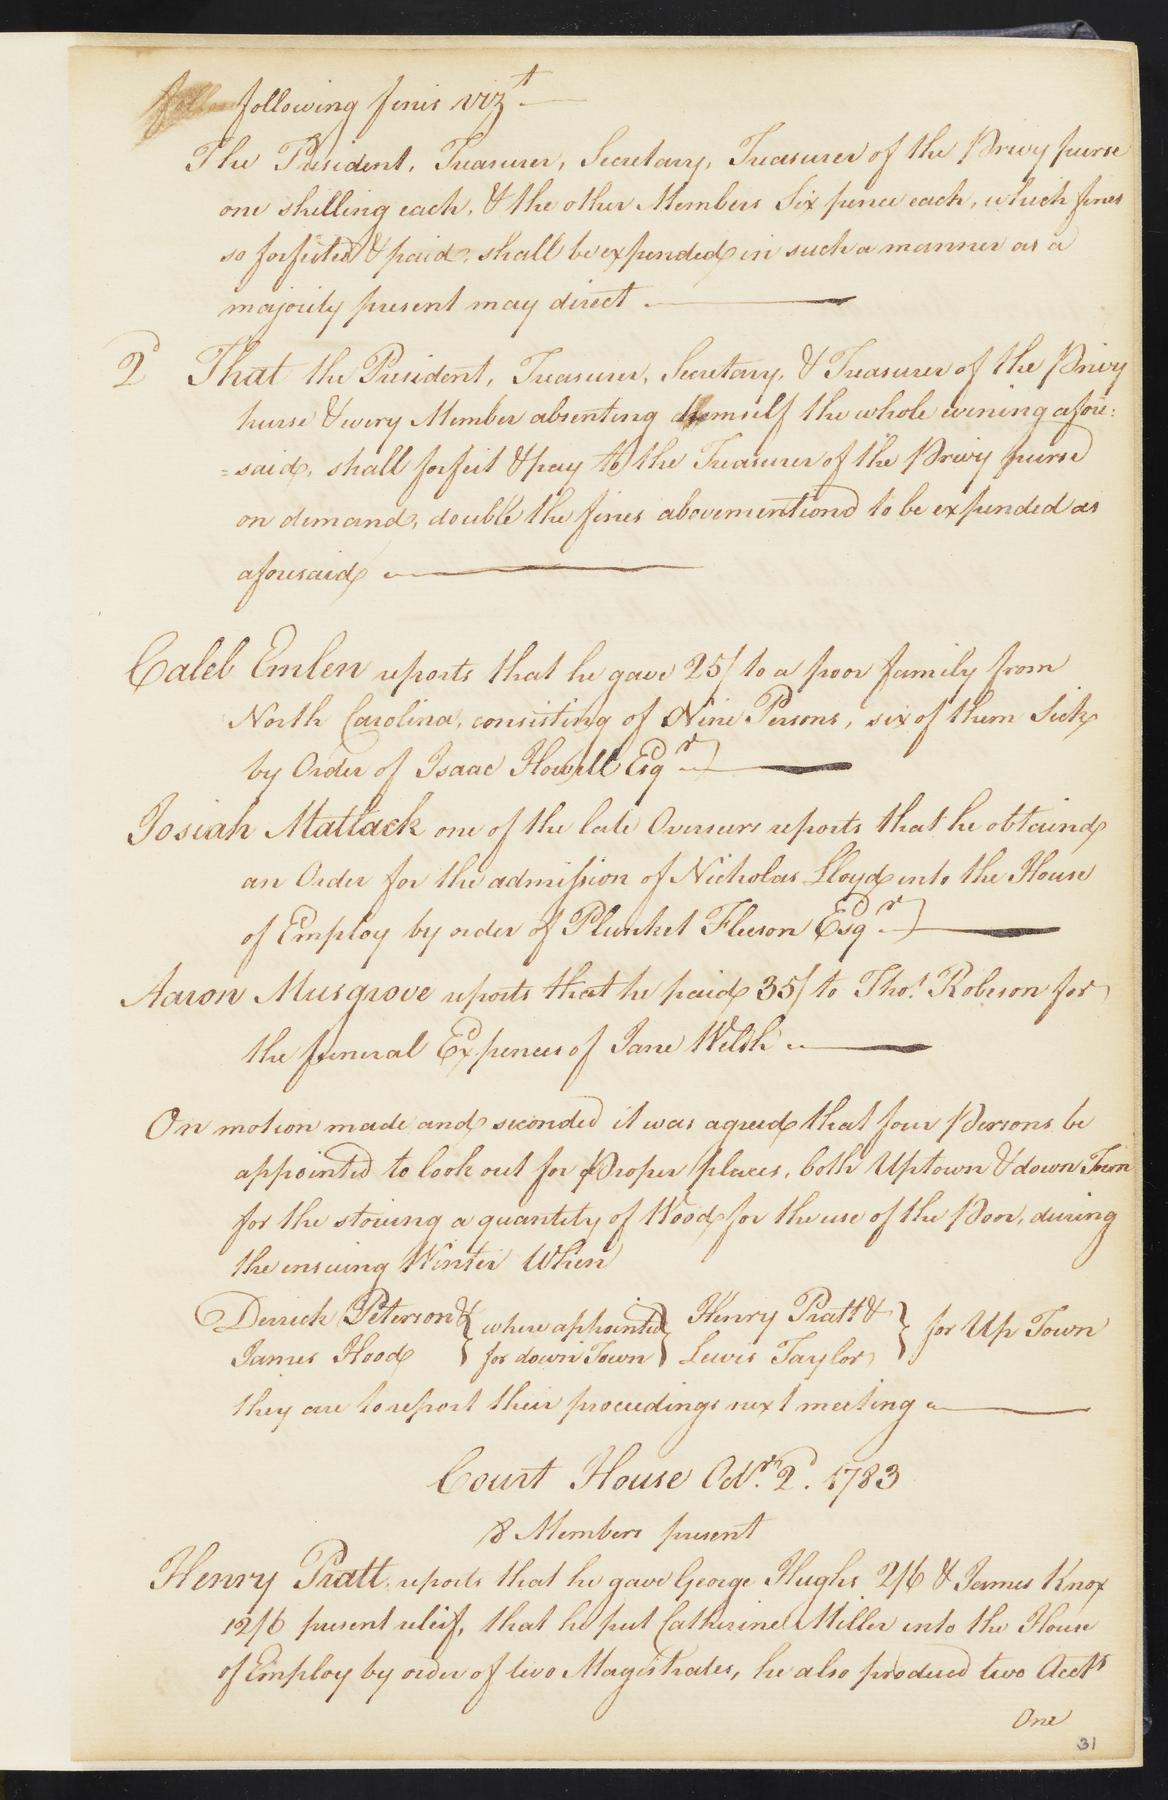 following fines vizt
The President, Treasurer, Secretary, Treasurer of the Privy purse
one shilling each, & the other Members Six pence each, which fines
so forfeited & paid, shall be expended in such a manner as a
majority present may direct.
2d That the President, Treasurer, Secretary, & Treasurer of the Privy
purse & every Member absenting himself the whole evening afore=
=said, shall forfeit & pay to the Treasurer of the Privy purse
on demand, double the fines abovementiond to be expended as
aforesaid
Caleb Emlen reports that he gave 25/ to a poor family from
North Carolina, consisting of Nine Persons, six of them Sick,
by Order of Isaac Howell Esqr
Josiah Matlack one of the late Overseers reports that he obtaind
an Order for the admission of Nicholas Lloyd into the House
of Employ by order of Plunket Fleeson Esqr
Aaron Musgrove reports that he paid 35/ to Thos. Robeson for
the funeral Expences of Jane Welsh
On motion made and seconded it was agreed that four Persons be
appointed to look out for Proper places, both Uptown & down Town
for the stowing a quantity of Wood for the use of the Poor, during
the ensuing Winter When
Derrick Peterson & } where appointed } Henry Pratt & } for Up Town
James Hood } for down Town } Lewis Taylor }
they are to report their proceedings next meeting
Court House Octr. 2d. 1783
8 Members present
Henry Pratt, reports that he gave George Hughs 2/6 & James Knox
12/6 present releif, that he put Catherine Miller into the House
of Employ by order of two Magistrates, he also produced two Accts
One
31